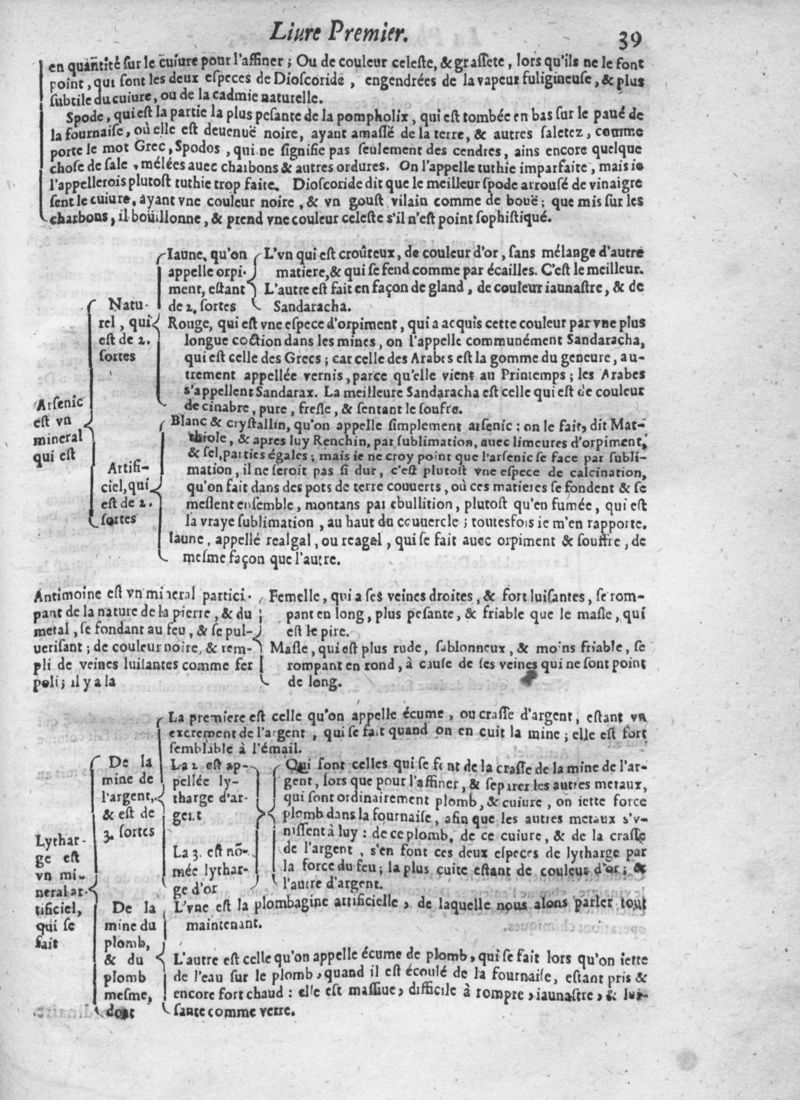 Liure Premier.
39
en quantité sur le cuiure pour l'affiner ; Ou de couleur celeste, & grassete, lors qu'ils ne le font
point, qui sont les deux especes de Dioscoride, engendrées de la vapeur fuligineuse, & plus
subtile du cuiure, ou de la cadmie naturelle.
Spode, qui est la partie la plus pesante de la pompholix, qui est tombée en bas sur le paué de
la fournaise, où elle est deuenuë noire, ayant amassé de la terre, & autres saletez, comme
porte le mot Grec, Spodos, qui ne signifie pas seulement des cendres, ains encore quelque
chose de sale, mélées auec charbons & autres ordures. On l'appelle tuthie imparfaite, mais ie
l'appellerois plutost tuthie trop faite. Dioscoride dit que le meilleur spode arrousé de vinaigre
sent le cuiure, ayant vne couleur noire, & vn goust vilain comme de bouë ; que mis sur les
charbons, il boüillonne, & prend vne couleur celeste s'il n'est point sophistiqué.
Arsenic
est vn
mineral
qui est
Natu-
rel, qui
est de 2.
sortes
Iaune, qu'on
appelle orpi-
ment, estant
de 2. sortes
L'vn qui est croûteux, de couleur d'or, sans mélange d'autre
matiere, & qui se fend comme par écailles. C'est le meilleur.
L'autre est fait en façon de gland, de couleur iaunastre, & de
Sandaracha.
Rouge, qui est vne espece d'orpiment, qui a acquis cette couleur par vne plus
longue coction dans les mines, on l'appelle communément Sandaracha,
qui est celle des Grecs ; car celle des Arabes est la gomme du geneure, au-
trement appellée vernis, parce qu'elle vient au Printemps ; les Arabes
s'appellent Sandarax. La meilleure Sandaracha est celle qui est de couleur
de cinabre, pure, fresle, & sentant le soufre.
Artifi-
ciel, qui
est de 2.
sortes
Blanc & crystallin, qu'on appelle simplement arsenic : on le fait, dit Mat-
thiole, & apres luy Renchin, par sublimation, auec limeures d'orpiment,
& sel, parties égales ; mais ie ne croy point que l'arsenic se face par subli-
mation, il ne seroit pas si dur, c'est plutost vne espece de calcination,
qu'on fait dans des pots de terre couuerts, où ces matieres se fondent & se
meslent ensemble, montans par ebullition, plutost qu'en fumée, qui est
la vraye sublimation, au haut du couuercle ; toutesfois ie m'en rapporte.
Iaune, appellé realgal, ou reagal, qui se fait auec orpiment & souffre, de
mesme façon que l'autre.
Antimoine est vn mineral partici-
pant de la nature de la pierre, & du
metal, se fondant au feu, & se pul-
uerisant ; de couleur noire, & rem-
pli de veines luisantes comme fer
poli ; il y a la
Femelle, qui a ses veines droites, & fort luisantes, se rom-
pant en long, plus pesante, & friable que le masle, qui
est le pire.
Masle, qui est plus rude, sablonneux, & moins friable, se
rompant en rond, à cause de ses veines qui ne sont point
de long.
Lythar-
ge est
vn mi-
neral ar-
tificiel,
qui se
fait
De la
mine de
l'argent,
& est de
3. sortes
La premiere est celle qu'on appelle écume, ou crasse d'argent, estant vn
excrement de l'argent, qui se fait quand on en cuit la mine ; elle est fort
semblable à l'émail.
La 2 est ap-
pellée ly-
tharge d'ar-
gent
La 3. est nō-
mée lythar-
ge d'or
Qui sont celles qui se font de la crasse de la mine de l'ar-
gent, lors que pour l'affiner, & separer les autres metaux,
qui sont ordinairement plomb, & cuiure, on iette force
plomb dans la fournaise, afin que les autres metaux s'v-
nissent à luy : de ce plomb, de ce cuiure, & de la crasse
de l'argent, s'en font ces deux especes de lytharge par
la force du feu ; la plus cuite estant de couleur d'or ; &
l'autre d'argent.
De la
mine du
plomb,
& du
plomb
mesme,
dont
L'vne est la plombagine artificielle, de laquelle nous alons parler tout
maintenant.
L'autre est celle qu'on appelle écume de plomb, qui se fait lors qu'on iette
de l'eau sur le plomb, quand il est écoulé de la fournaise, estant pris &
encore fort chaud : elle est massiue, difficile à rompre, iaunastre, & lui-
sante comme verre.